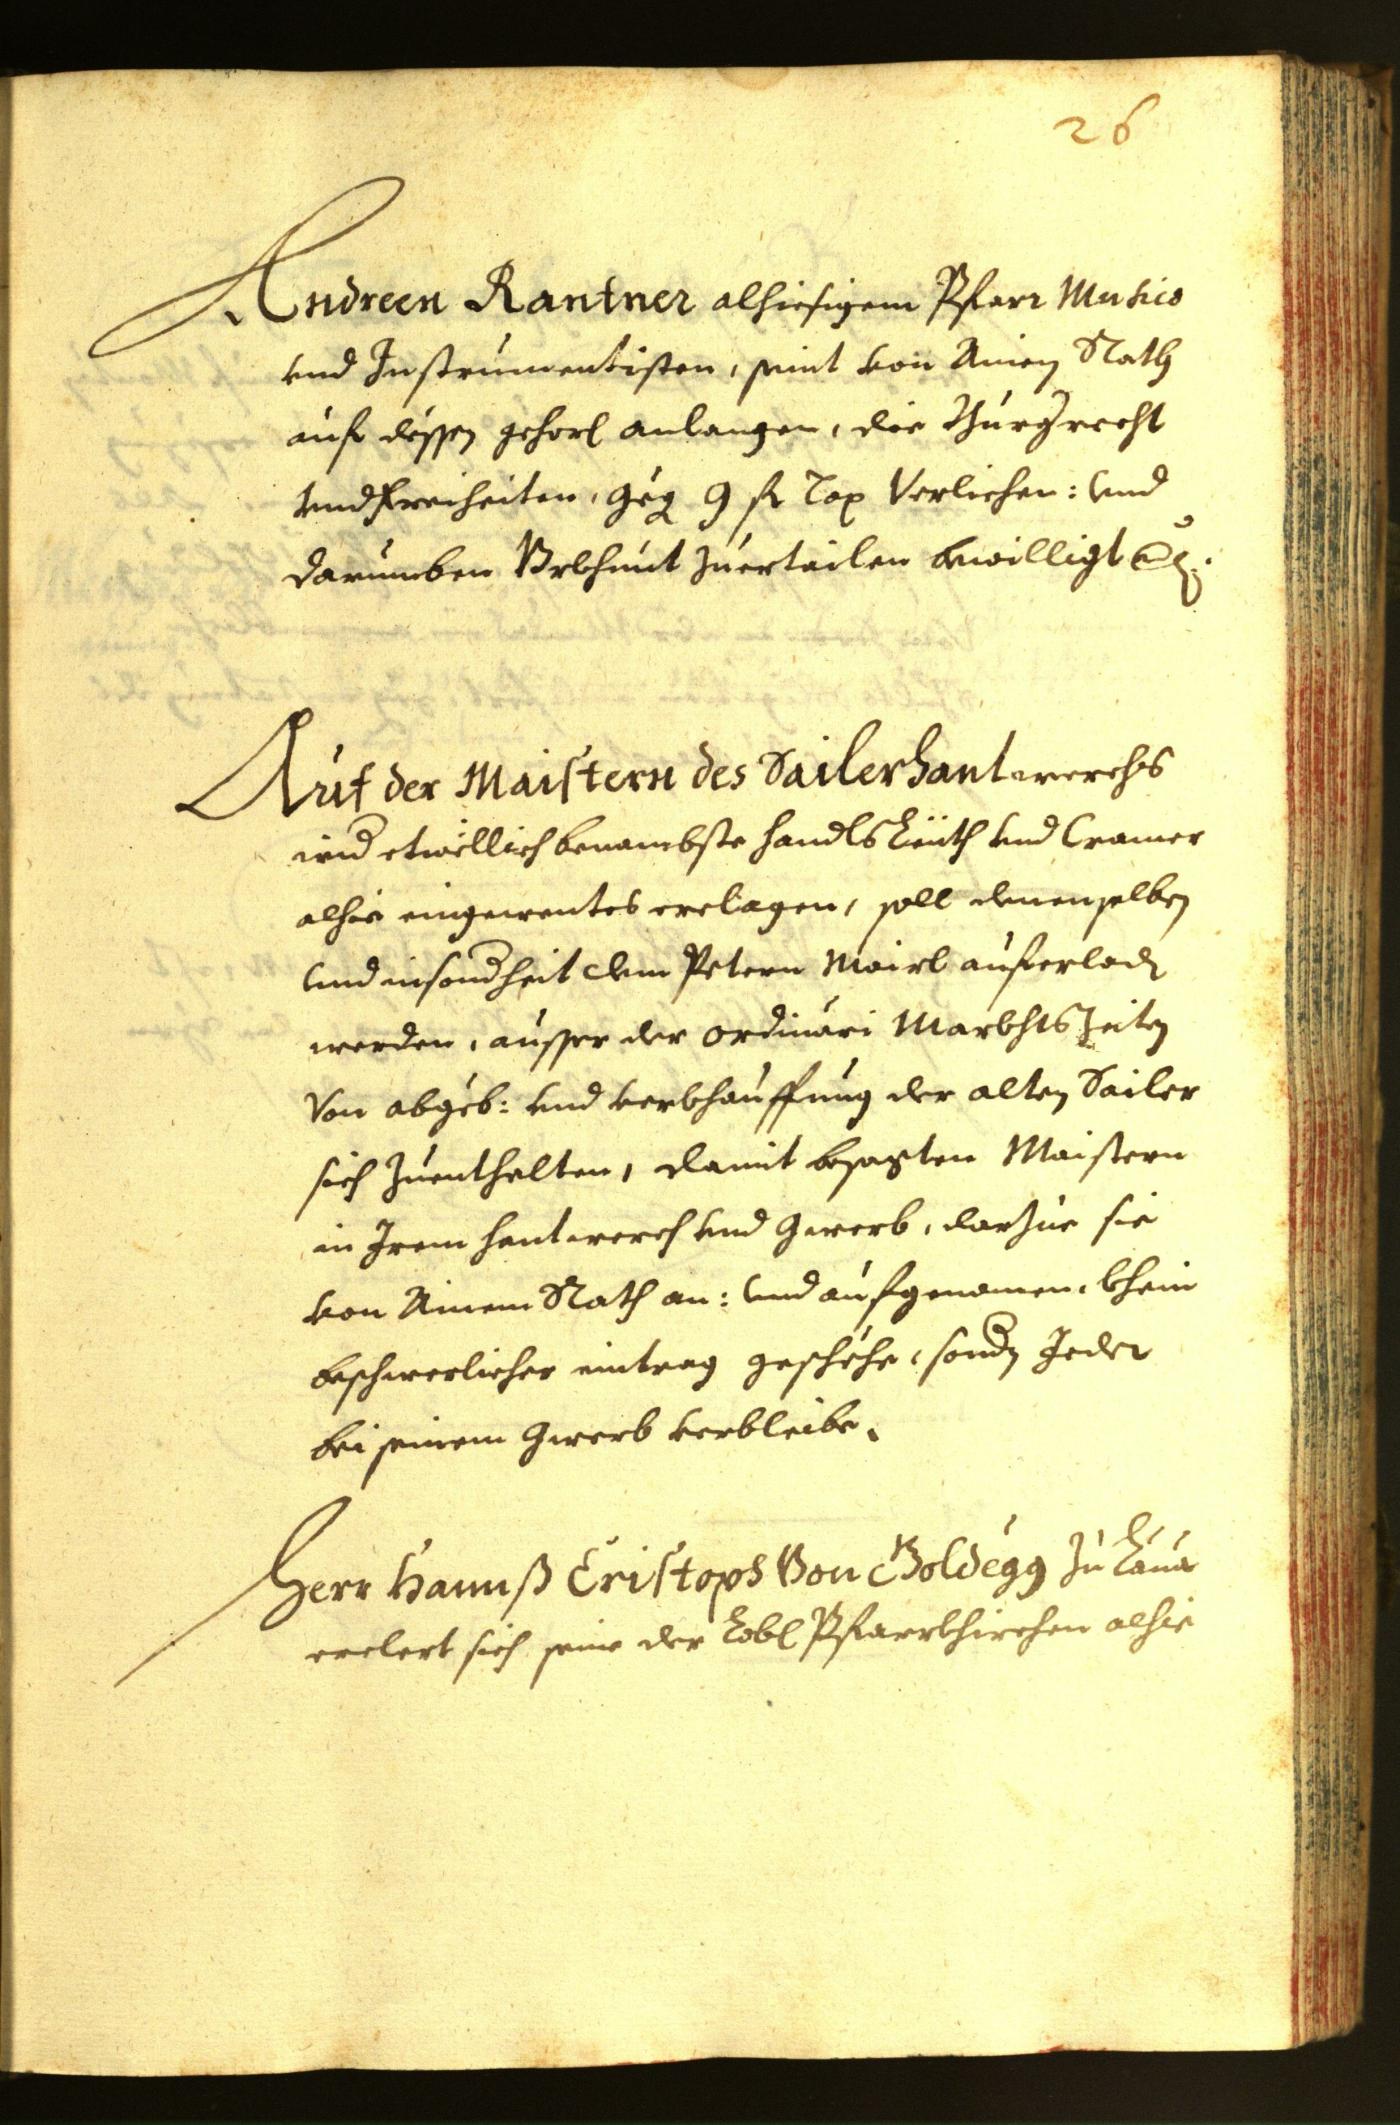 26
Andreen Rantner alhiesigem Pfarr Musico
vnd Instrumentisten, seint von Ainen Rath
auf dessen gehors anlangen, die Burgrecht
vnd freiheiten, geg 9 fl Tax Verlichen: vnd
darumben Vrkhunt zuertailen bewilligt
Auf der Maistern des Sailerhantwerchs
wid etwellich benambste handlsleuth vnd Cramer
alhie eingewentes erclagen, soll denenselben
vnd insondheit dem Petern Mairl auferladen
werden, ausser der ordinari Markhtszeiten
Von abgeb: vnd verkhauffung der alten Sailer
sich zuenthalten, damit besagten Maistern
in Irem hantwerch vnd Gwerb, darzue sie
von Ainem Rath an: vnd aufgenomen, khein
beschwerlicher eintrag geschehe, sondern Jeder
bei seinem Gwerb verbleibe.
Herr Hannß Cristoph Von Goldegg zu Lana
erclert sich seine der Lobl Pfarrkhirchen alhie